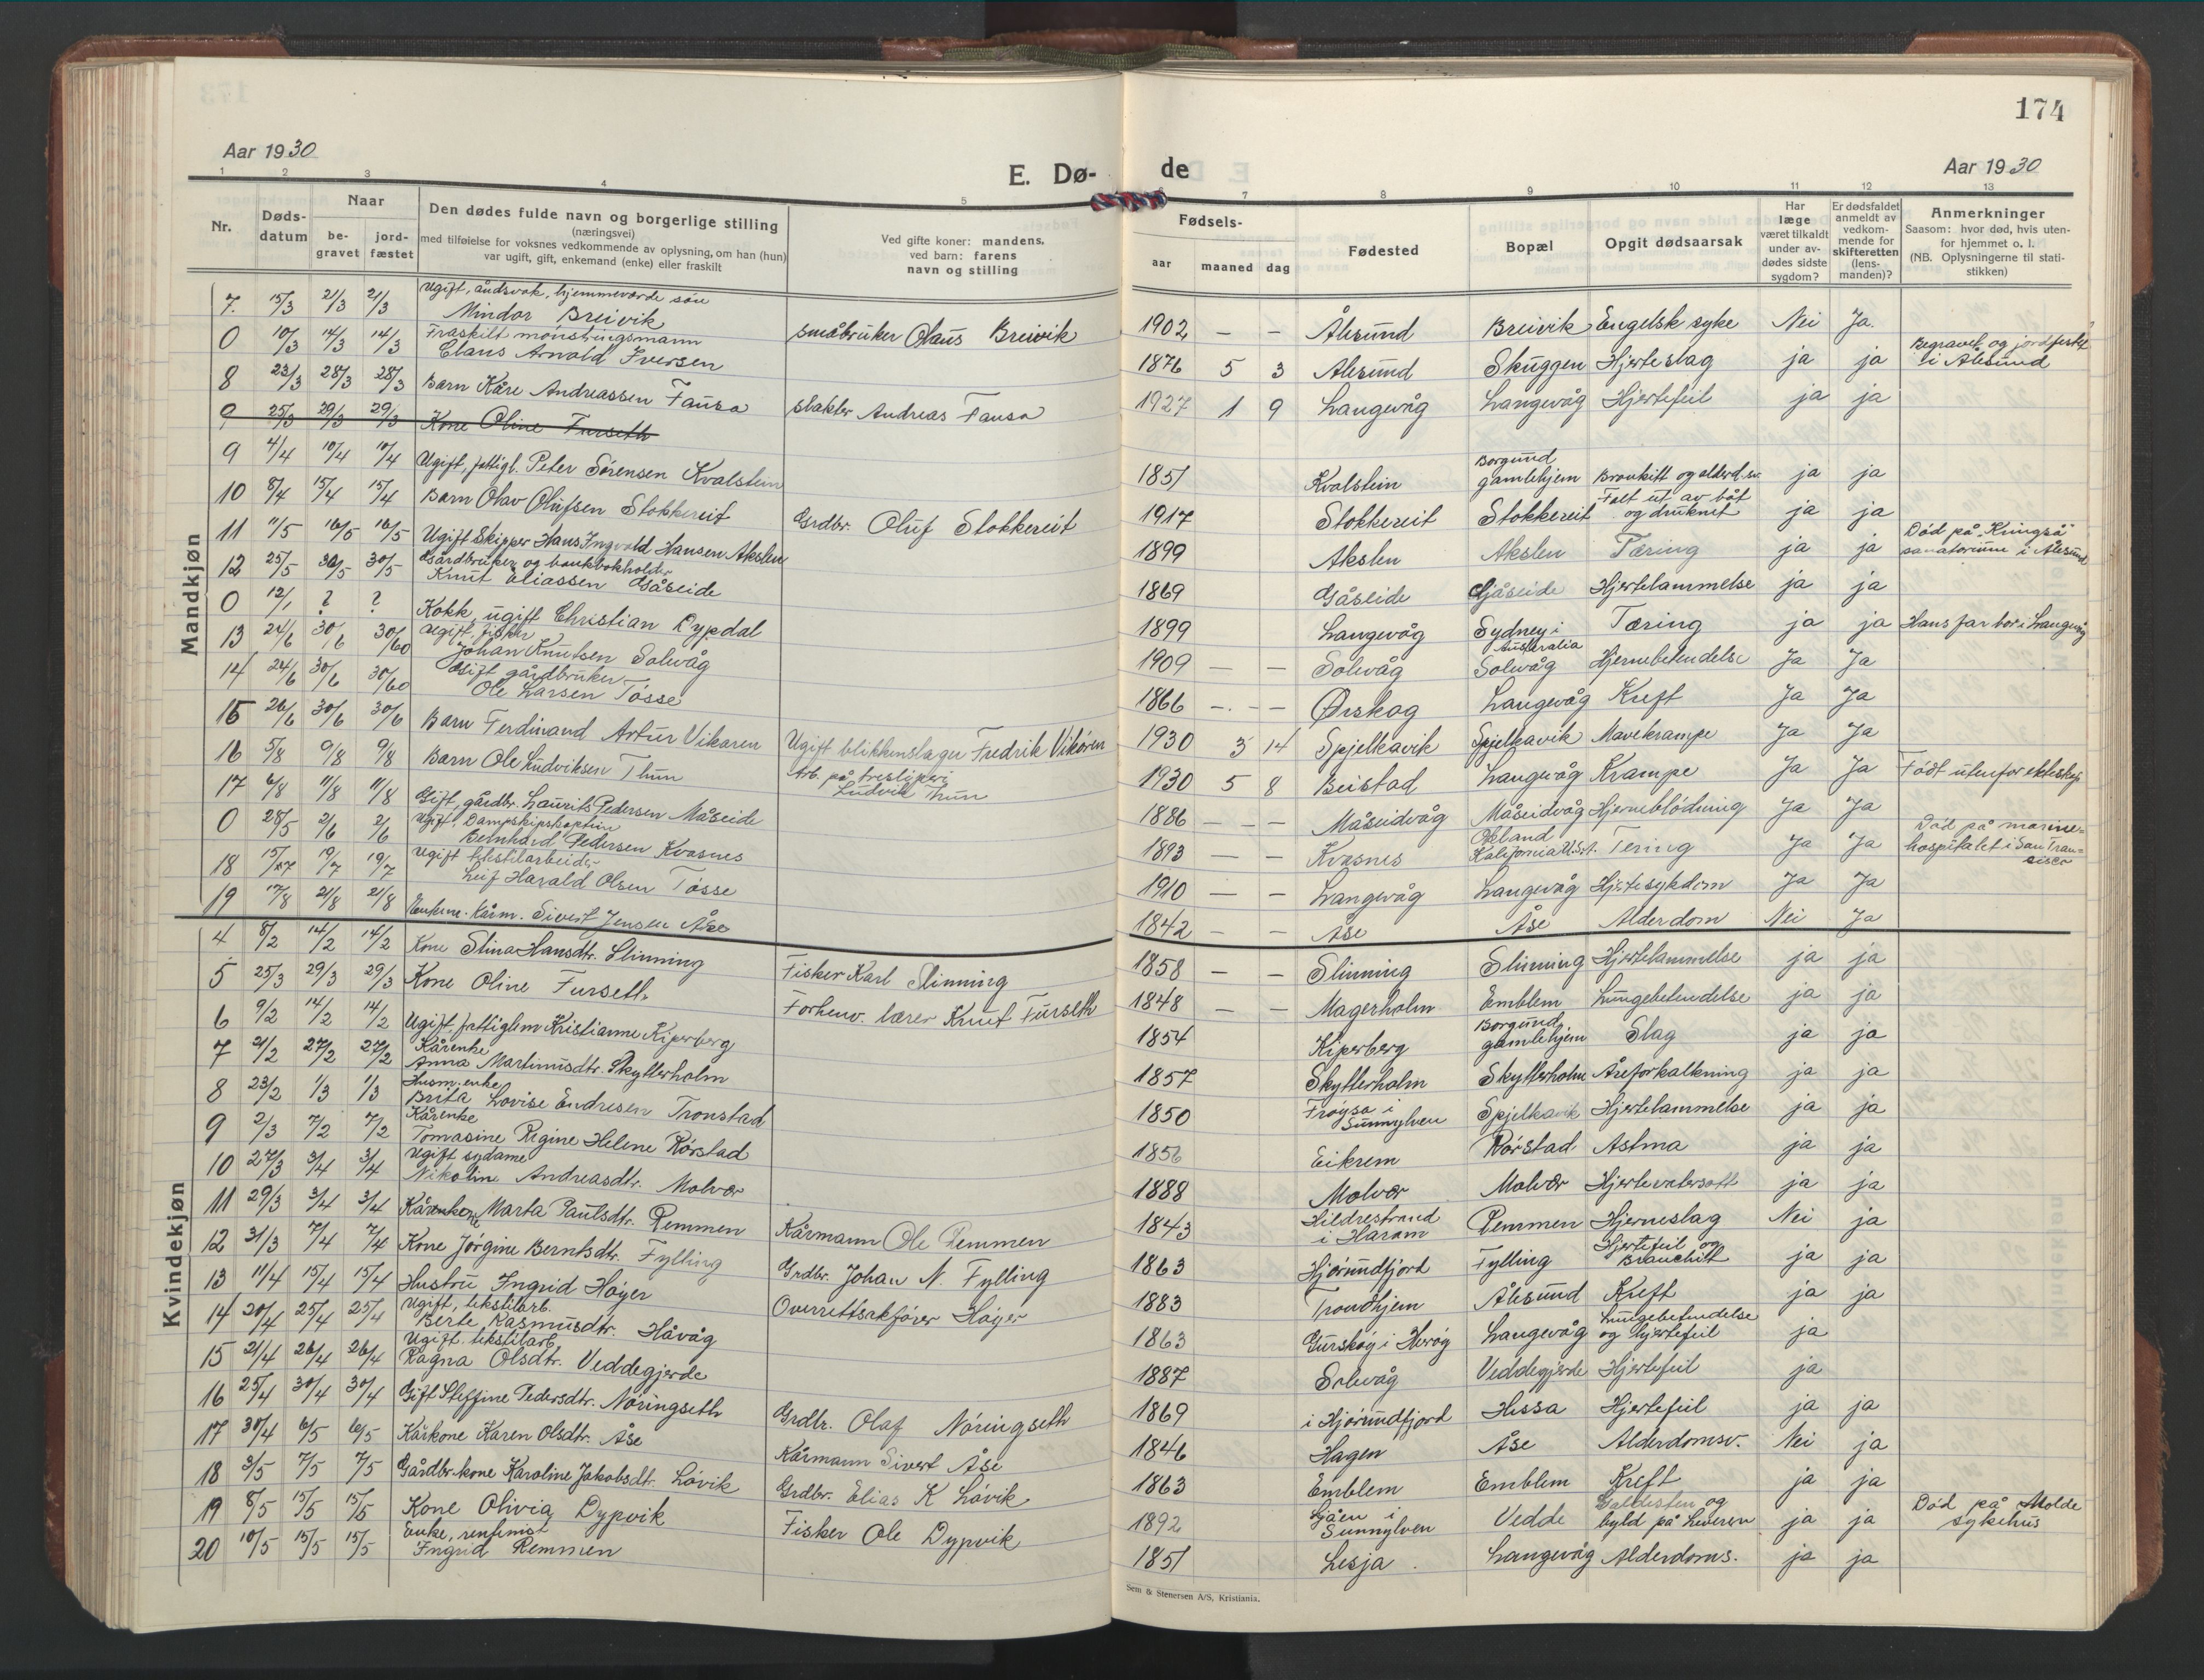 174
Aar 1930
E. Dø-
de
Aar 1930
1 2 3 4 5 6 7 8 9 10 11 12 13
Nr.
Døds-
datum
Naar
be-
gravet
jord-
fæstet
Den dødes fulde navn og borgerlige stilling
(næringsvei)
med tilføielse for voksnes vedkommende av oplysning, om han (hun)
var ugift, gift, enkemand (enke) eller fraskilt
Ved gifte koner: mandens,
ved barn: farens
navn og stilling
Fødsels-
aar
maaned
dag
Fødested
Bopæl
Opgit dødsaarsak
Har
læge
været tilkaldt
under av-
dødes sidste
sygdom?
Er dødsfaldet
anmeldt av
vedkom-
mende for
skifteretten
(lens-
manden)?
Anmerkninger
Saasom: hvor død, hvis uten-
for hjemmet o. l.
(NB. Oplysningerne til stati-
stikken)
Mandkjøn
7. 15/3 21/3 21/3 Ugift, åndsvak, hjemmeværende søn
Mindor Breivik småbruker Olaus Breivik 1902 — — Ålesund Breivik Engelsk syke Nei Ja.
0 10/3 14/3 14/3 Fraskilt mønstringsmann
Claus Arnold Iversen 1876 5 3 Ålesund Skuggen Hjerteslag ja ja Begravet og jordfestet
i Ålesund
8 23/3 28/3 28/3 Barn Kåre Andreassen Fausa Andreas Fausa 1927 1 9 Langevåg Langevåg Hjertefeil ja ja
9 25/3 29/3 29/3 Kone Oline Furseth
9 4/4 10/4 10/4 Ugift, fattigl. Peter Sørensen Kvalstein 1851 Kvalstein Borgund
gamlehjem Bronkitt og alderd.sv. ja ja
10 8/4 15/4 15/4 Barn Olav Olufsen Stokkereit Grdbr. Oluf Stokkereit 1917 Stokkereit Stokkereit Falt ut av båt
og druknet ja ja
11 11/5 16/5 16/5 Ugift Skipper Hans Ingvald Hansen Akslen 1899 Akslen Akslen Tæring ja ja Død på "Kringsjå"
sanatorium i Ålesund
12 25/5 30/5 30/5 Gårdbruker og bankbokholder
Knut Eliassen Gåseide 1869 Gåseide Gåseide Hjertelammelse ja ja
0 12/1 ? ? Kokk, ugift Christian Dypdal 1899 Langevåg Sydney i
Australia Tæring ja ja Hans far bor i Langevåg
13 24/6 30/6 30/60 Ugift, fisker
Johan Knutsen Solevåg 1909 — — Solevåg Solevåg Hjernebetendelse Ja Ja
14 24/6 30/6 30/60 Gift gårdbruker
Ole Larsen Tøsse 1866 — — Ørskog Langevåg Kreft Ja Ja
15 26/6 30/6 30/6 Barn Ferdinand Artur Vikøren Ugift blikkenslager Fredrik Vikøren 1930 3 14 Spjelkavik Spjelkavik Mavekrampe Ja Ja
16 5/8 9/8 9/8 Barn Ole Ludviksen Thun Arb. på tresliperi
Ludvik Thun 1930 5 8 Beistad Langevåg Krampe Ja Ja Født utenfor ekteskap
17 6/8 11/8 11/8 Gift, gårdbr. Laurits Pedersen Måseide 1886 — — Måseidvåg Måseidvåg Hjerneblødning Ja Ja
0 28/5 2/6 2/6 Ugift, Dampskipskaptein
Bernhard Pedersen Kvasnes 1893 — — Kvasnes Okland
Kalifornia U.S.A. Tering Ja Ja Død på marine-
hospitalet i San Fran-
sisco
18 15/7 19/7 19/7 Ugift tekstilarbeider
Leif Harald Olsen Tøsse 1910 — — Langevåg Langevåg Hjertesykdom Ja Ja
19 17/8 21/8 21/8 Enkem. Kårm. Sivert Jensen Åse 1842 — — Åse Åse Alderdom Nei Ja
Kvindekjøn
4 8/2 14/2 14/2 Kone Stina Hansdtr. Slinning Fisker Karl Slinning 1858 — — Slinning Slinning Hjertelammelse ja ja
5 25/3 29/3 29/3 Kone Oline Furseth Forhenv. lærer Knut Furseth 1848 — — Magerholm Emblem Lungebetendelse ja ja
6 9/2 14/2 14/2 Ugift fattiglem Kristianne Kiperberg 1854 Kiperberg Borgund
gamlehjem Slag ja ja
7 21/2 27/2 27/2 Kårenke
Anna Martinusdtr. Skytterholm 1857 Skytterholm Skytterholm Åreforkalkning ja ja
8 23/2 1/3 1/3 Husm.enke
Brita Lovise Endresen Tronstad 1850 Frøysa i
Sunnylven Spjelkavik Hjertelammelse ja ja
9 2/3 7/2 7/2 Kårenke
Tomasine Regine Helene Rørstad 1856 Eikrem Rørstad Astma ja ja
10 27/3 3/4 3/4 Ugift sydame
Nikoline Andreasdtr. Molvær 1888 Molvær Molvær Hjertevatersott ja ja
11 29/3 3/4 3/4 Kårkone Marta Paulsdtr. Remmen Kårmann Ole Remmen 1843 Hildrestrand
i Haram Remmen Hjerneslag Nei ja
12 31/3 7/4 7/4 Kone Jørgine Berntsdtr. Fylling Grdbr. Johan N. Fylling 1863 Hjørundfjord Fylling Hjertefeil og
Branchitt ja ja
13 11/4 15/4 15/4 Hustru Ingrid Høyer Overrettsakfører Høyer 1883 Trondhjem Ålesund Kreft ja ja
14 20/4 25/4 25/4 Ugift, tekstilarb.
Berte Rasmusdtr. Håvåg 1863 Gurskøy i Herøy Langevåg Lungebetendelse
og hjertefeil ja
15 21/4 26/4 26/4 Ugift. tekstilarb.
Ragna Olsdtr. Veddegjerde 1887 Solevåg Veddegjerde Hjertefeil ja
16 25/4 30/4 30/4 Gift Steffine Pedersdtr. Nøringseth Grdbr. Olaf Nøringseth 1869 i Hjørundfjord Hessa Hjertefeil ja ja
17 30/4 6/5 6/5 Kårkone Karen Olsdtr. Åse Kårmann Sivert Åse 1846 Hagen Åse Alderdomsv. Nei ja
18 3/5 7/5 7/5 Gårdbr.kone Karoline Jakobsdtr. Løvik Grdbr. Elias K Løvik 1863 Emblem Emblem Kreft ja ja
19 8/5 15/5 15/5 Kone Olivia Dypvik Fisker Ole Dypvik 1892 i
Sunnylven Vedde Galdesten og
byld på Leveren ja ja Død på Molde
sykehus
20 10/5 15/5 15/5 Enke, renfemist
Ingrid Remmen 1851 Lesja Langevåg Alderdoms. ja ja
Sem & Stenersen A/S, Kristiania.